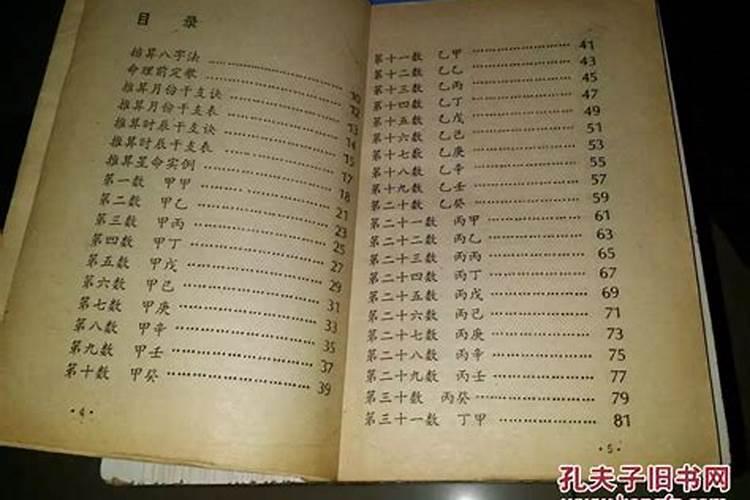 目 录
推算八字法 ……………… 10
命理前定歌 ……………… 12
推算月份干支诀 ……………… 13
推算月份干支表 ……………… 14
推算时辰干支诀 ……………… 15
推算时辰干支表 ……………… 17
推算星命实例 ……………… 18
第一数 甲甲 ……………… 21
第二数 甲乙 ……………… 23
第三数 甲丙 ……………… 25
第四数 甲丁 ……………… 27
第五数 甲戊 ……………… 29
第六数 甲己 ……………… 31
第七数 甲庚 ……………… 33
第八数 甲辛 ……………… 35
第九数 甲壬 ……………… 37
第十数 甲癸 ……………… 39
·4·
第十一数 乙甲 ……………… 41
第十二数 乙乙 ……………… 43
第十三数 乙丙 ……………… 45
第十四数 乙丁 ……………… 47
第十五数 乙戊 ……………… 49
第十六数 乙己 ……………… 51
第十七数 乙庚 ……………… 53
第十八数 乙辛 ……………… 55
第十九数 乙壬 ……………… 57
第二十数 乙癸 ……………… 59
第二十一数 丙甲 ……………… 61
第二十二数 丙乙 ……………… 63
第二十三数 丙丙 ……………… 65
第二十四数 丙丁 ……………… 67
第二十五数 丙戊 ……………… 69
第二十六数 丙己 ……………… 71
第二十七数 丙庚 ……………… 73
第二十八数 丙辛 ……………… 75
第二十九数 丙壬 ……………… 77
第三十数 丙癸 ……………… 79
第三十一数 丁甲 ……………… 81
·5·
孔夫子旧书网